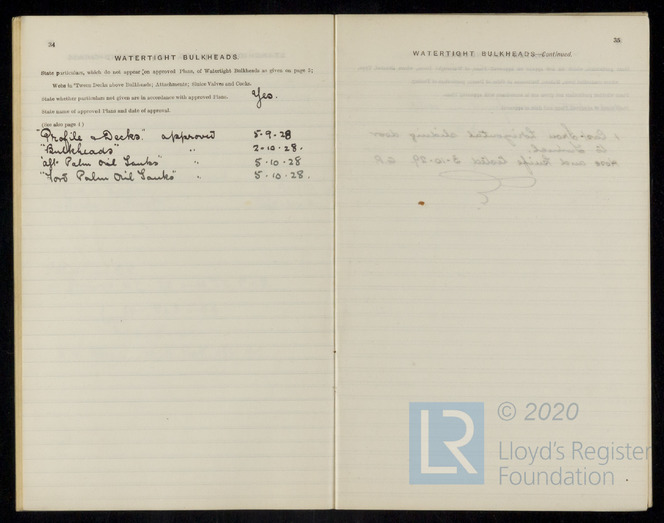 34
WATERTIGHT BULKHEADS.
State particulars, which do not appear on approved Plans, of Watertight Bulkheads as given on page 2;
Webs in 'Tween Decks above Bulkheads; Attachments; Sluice Valves and Cocks.
State whether particulars not given are in accordance with approved Plans. Yes.
State name of approved Plans and date of approval.
(See also page 1)
"Profile & Decks" approved 5-9-28
"Bulkheads" " 2-10-28.
"Aft Palm Oil Tanks" " 5-10-28
"Ford Palm Oil Tanks" " 5-10-28.
35
WATERTIGHT BULKHEADS—Continued.
LR
© 2020
Lloyd's Register
Foundation